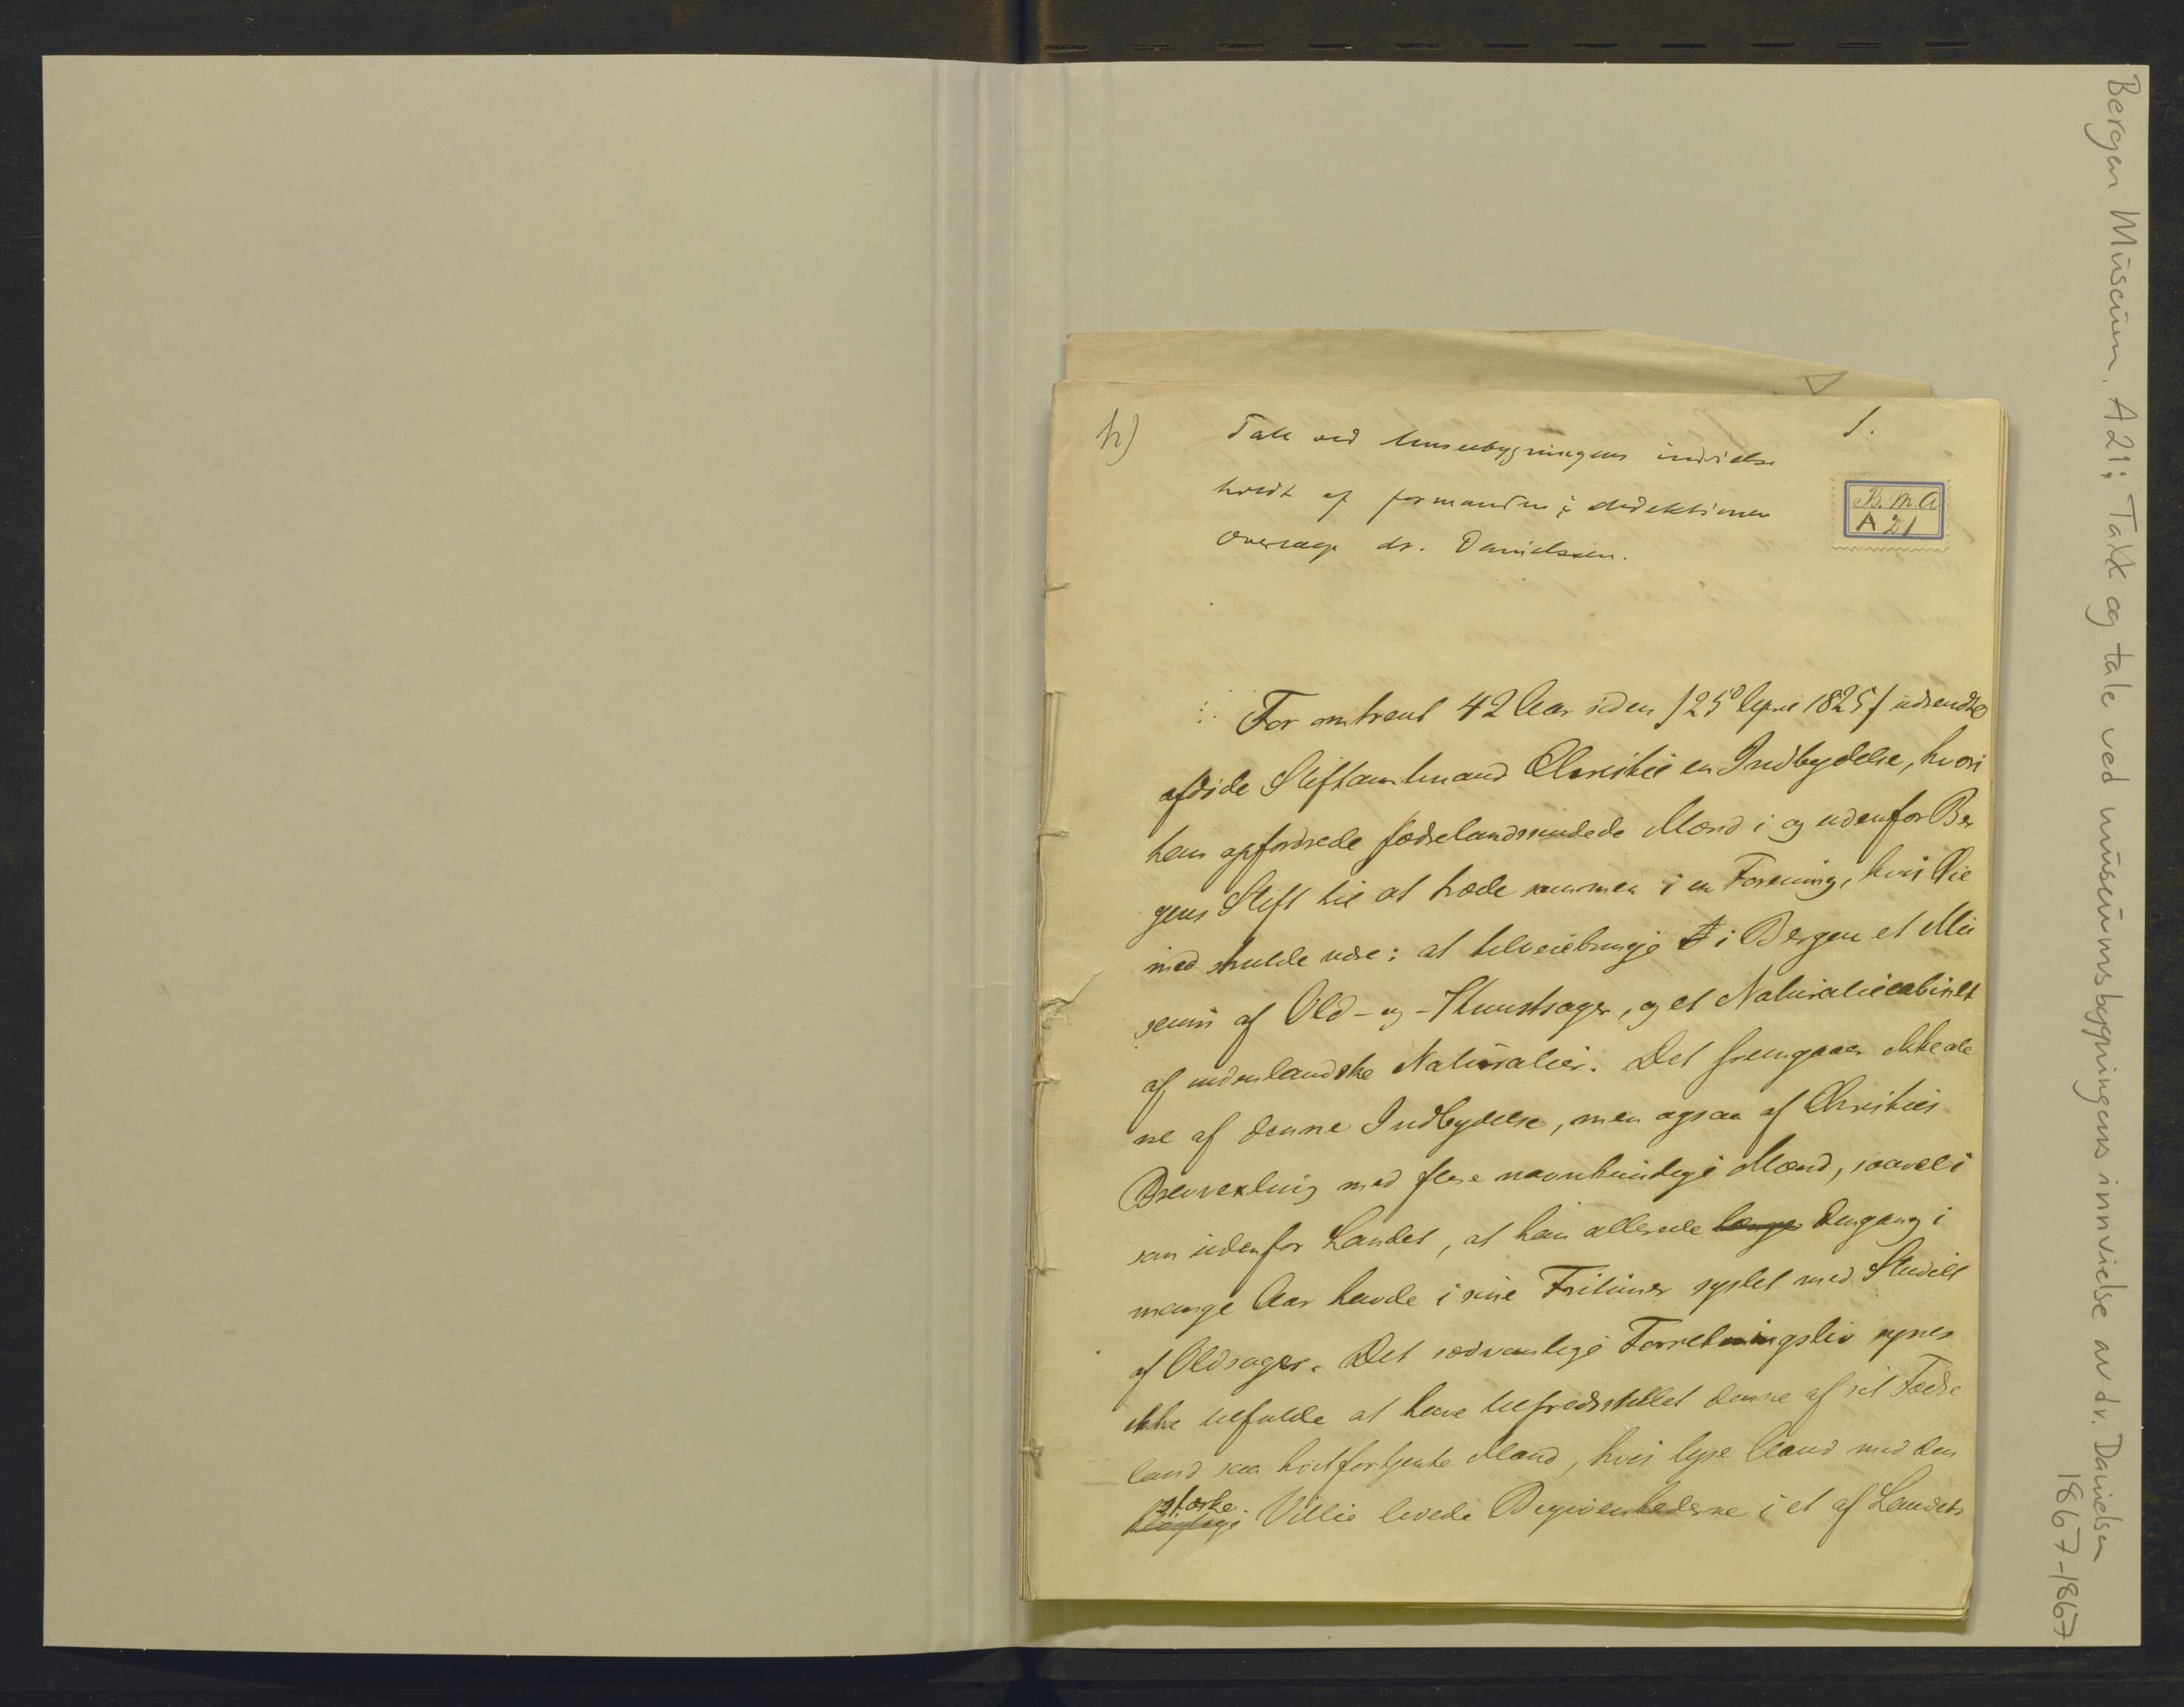 h)
1.
Tale ved Museebygningens indvielse
holdt af formanden i direktionen
overlæge dr. Danielssen.
B. M. A
A 21
For omtrent 42 Aar siden /25º April 1825/ udsendte
afdøde Stiftamtmand Christie en Indbydelse, hvori
han opfordrede fædrelandssindede Mænd i og udenfor Ber
gens Stift til at træde sammen i en Forening, hvis Øie
med skulde være: at tilveiebringe i Bergen et Mu
seum af Old- og -Kunstsager, og et Naturaliecabinet
af indenlandske Naturalier. Det fremgaaer ikke ale
ne af denne Indbydelse, men ogsaa af Christies
Brevvexling med flere navnkundige Mænd, saavel i
som udenfor Landet, at han allerede længe dengang i
mange Aar havde i sine Fritimer syslet med Studiet
af Oldsager. Det sædvanlige Forretningsliv synes
ikke tilfulde at have tilfredsstillet denne af sit Fædre
land saa høitfortjente Mand, hvis lyse Aand med den
stærke
Villie levede Begivenhederne i et af Landets
Bergen Museum. A21: Takk og tale ved museumsbygningens innvielse av dr. Danielsen
1867-1867